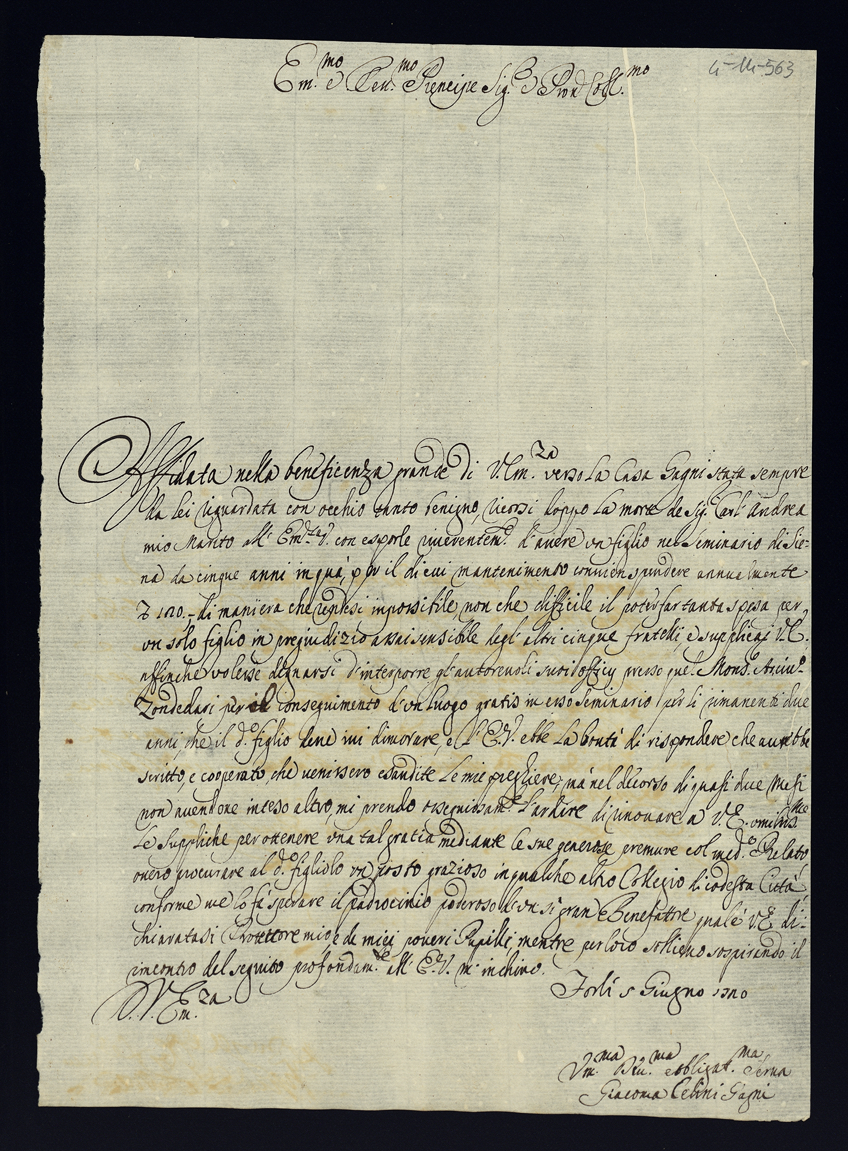 4-14-563
Em.mo e Rev.mo Prencipe Sig.e e Pron Coll.mo
Affidata nella beneficenza grande di V. Em.za verso la Casa Gagni stata sempre
da lei riguardata con occhio tanto benigno, ricorsi doppo la morte de Sig. Carl' Andrea
mio Marito all' con esporle d'avere un figlio nel Seminario di Sie-
na da cinque anni in quà, per il di cui mantenimento convien spendere annualmente
di maniera che rendesi impossibile, non che difficile il poter far tanta spesa per
un solo figlio in pregiudizio assai sensibile degl' altri cinque fratelli, e supplicai V.E.
affinche volesse degnarsi d'interporre gl' autorevoli suoi offizij presso que. Mons. Arciv.o
Zondedari per il conseguimento d'un luogo gratis in esso Seminario per li rimanenti due
anni, che il d.o figlio deve ivi dimorare, e l'E.V. ebbe la bontà di rispondere che avrebbe
scritto, e cooperato, che venissero esaudite le mie preghiere, mà nel decorso di quasi due mesi
non avendone inteso altro, mi prendo l'ardire di rinovare a V.E.
le suppliche per ottenere una tal gratia mediante le sue generose premure col med.o Prelato
overo procurare al d.o figliolo un posto grazioso in qualche altro Collegio di codesta Città
conforme me lo fà sperare il padrocinio poderoso d'un si gran Benefattre qual'è V.E. di-
chiaratasi Protettore mio e de miei poveri Pupilli, mentre per loro sollievo sospirando il
rincontro del seguito profondam.te all' E.V. m' inchino.
D. V. Em.za
Forlì 5 Giugno
Um.ma Dev.ma obbligat.ma Serva
Giacoma Celini Gagni